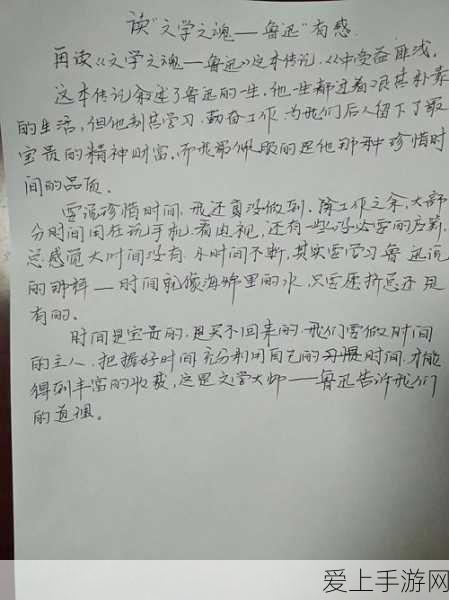 读“文学之魂——鲁迅”有感.
再读《文学之魂——鲁迅》这本传记.从中受益匪浅.
这本传记叙述了鲁迅的一生,他一生都过着艰苦朴素
的生活,但他刻苦学习.勤奋工作.为我们后人留下了最
宝贵的精神财富,而我最佩服的是他那种珍惜时
间的品质。
要说珍惜时间,我还真没做到.除工作之余,大部
分时间用在玩手机.看电视,还有一些没必要的应酬,
总感觉大时间没有.小时间不断,其实要学习鲁迅说
的那样——时间就像海绵里的水,只要愿挤总还是
有的。
时间是宝贵的.是买不回来的.我们要做时间
的主人.把握好时间充分利用自己的时间.才能
得到丰富的收获,这是文学大师——鲁迅告诉我们
的道理。
爱上手游网